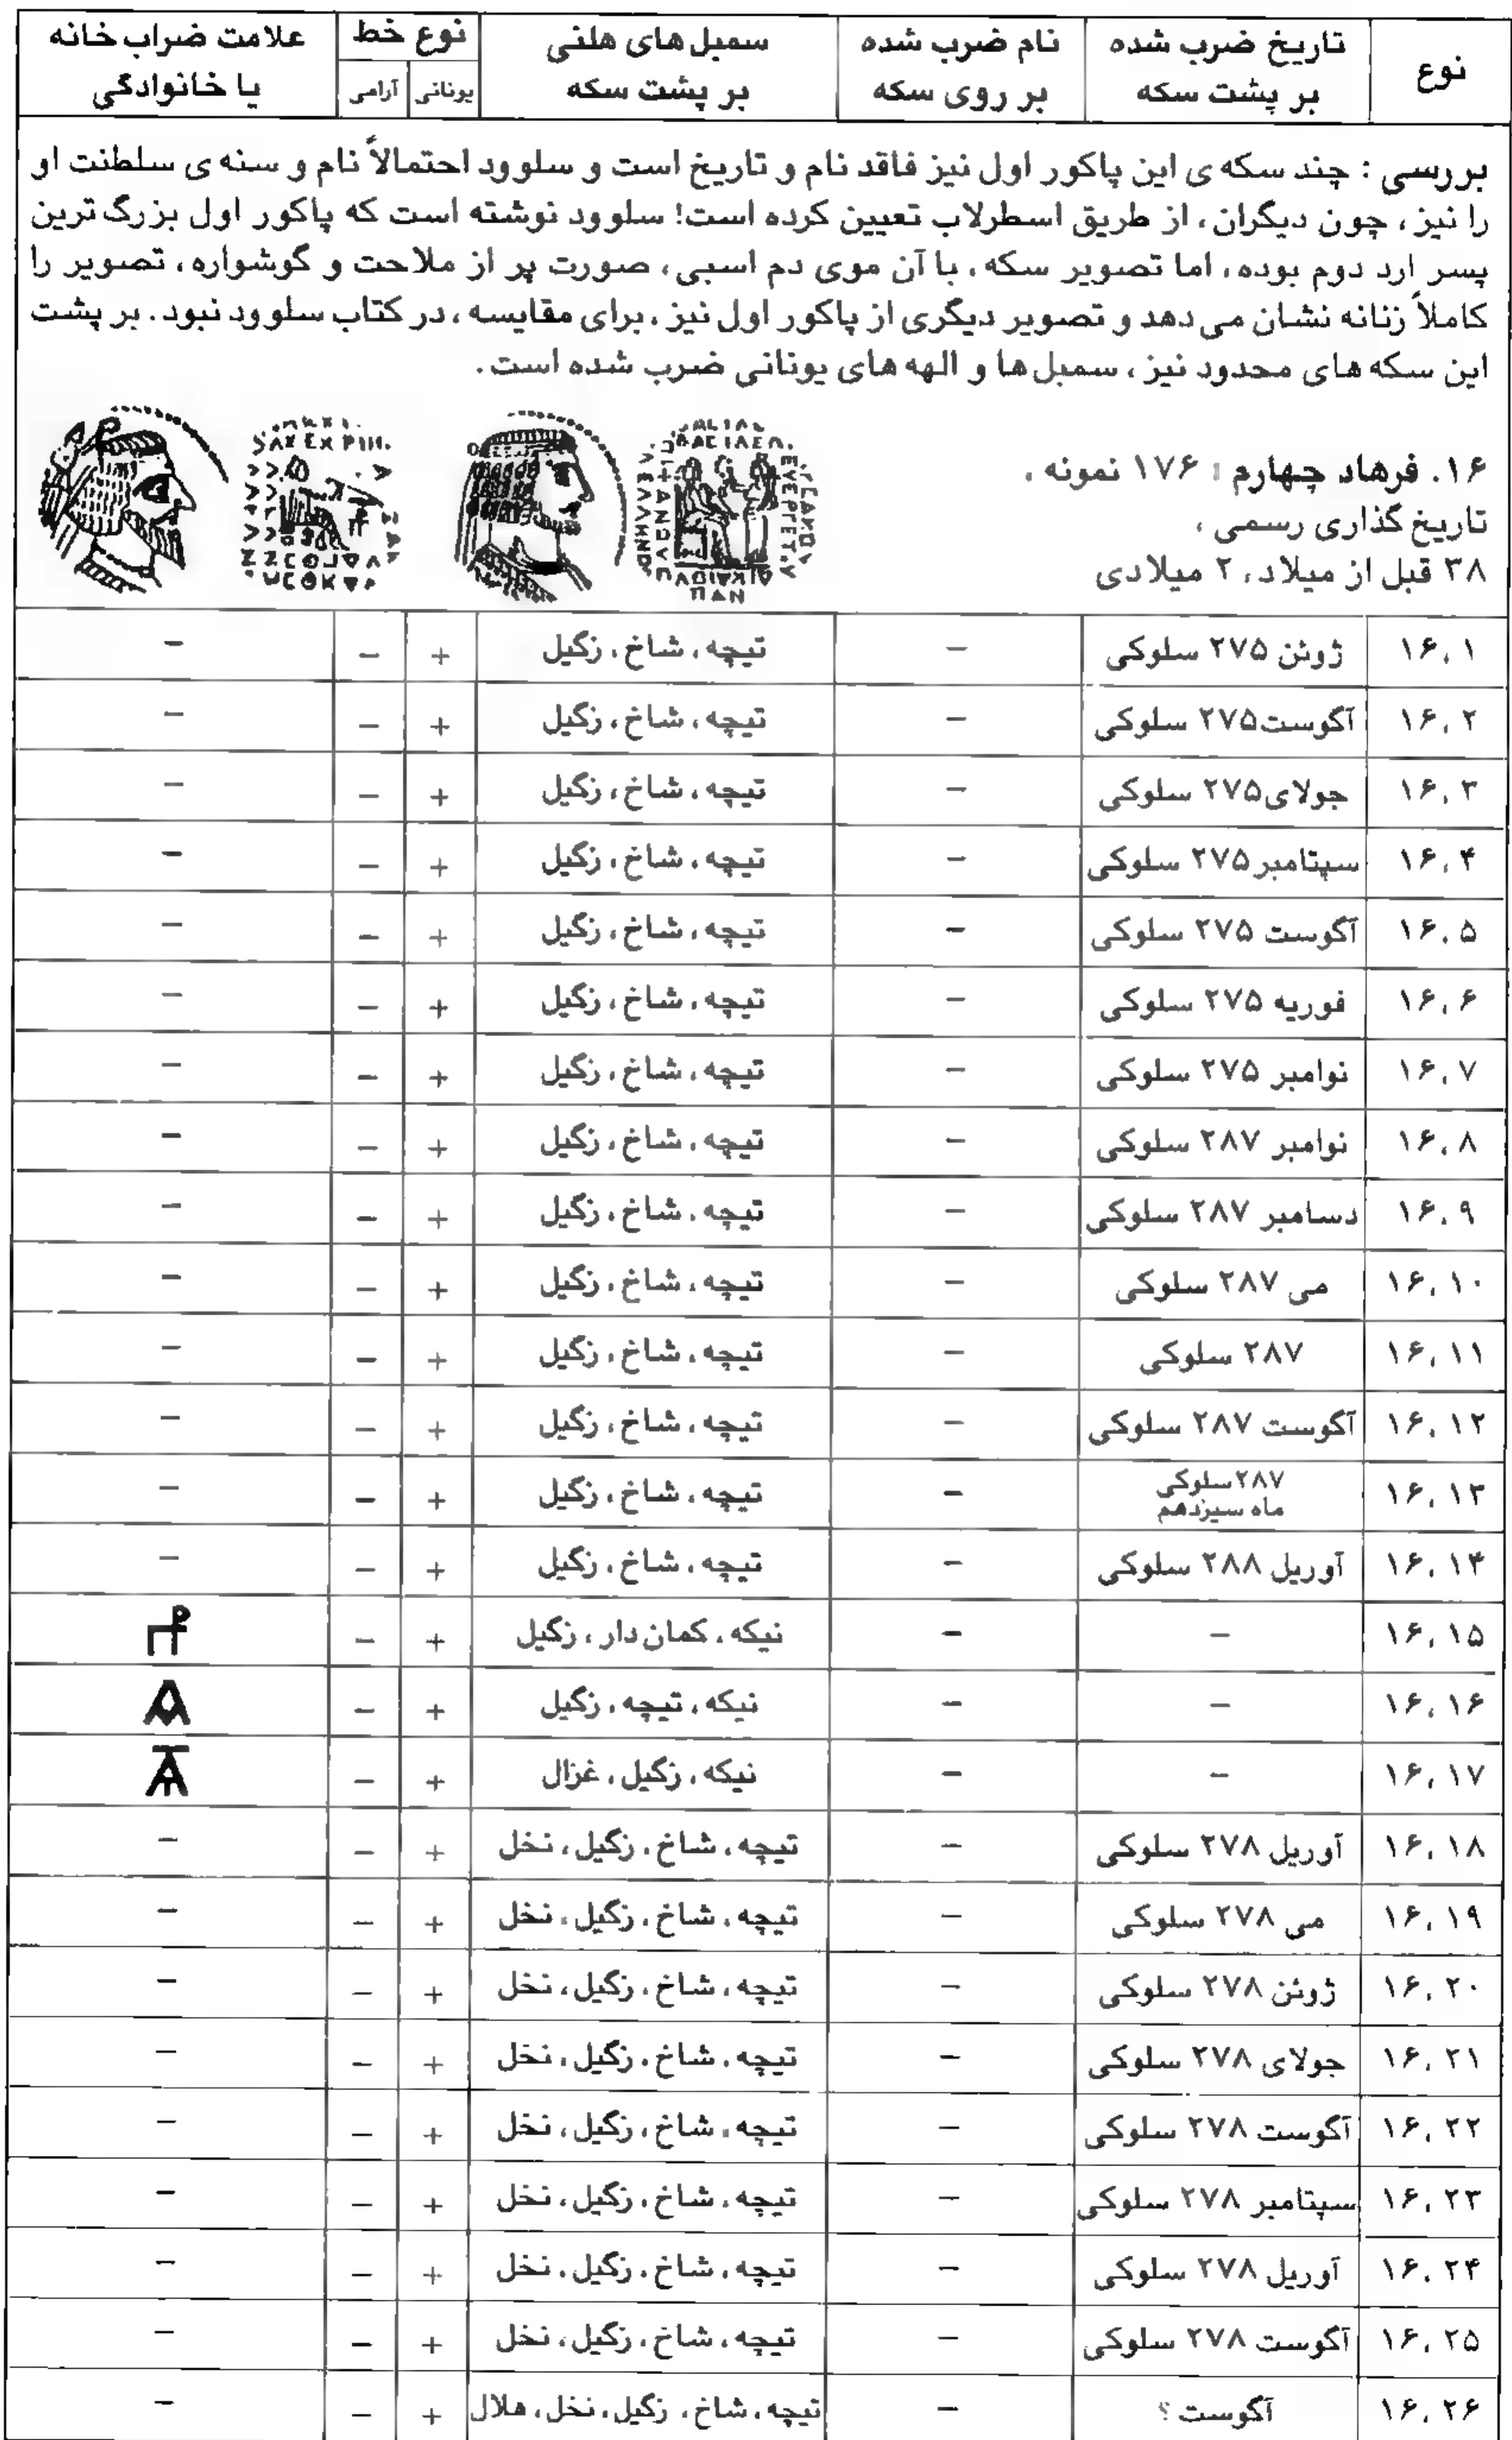 نوع | تاریخ ضرب شده بر پشت سکه | نام ضرب شده بر روی سکه | سمبل های هلنی بر پشت سکه | نوع خط: یونانی | آرامی | علامت ضراب خانه یا خانوادگی
بررسی : چند سکه ی این پاکور اول نیز فاقد نام و تاریخ است و سلوود احتمالاً نام و سنه ی سلطنت او
را نیز، چون دیگران، از طریق اسطرلاب تعیین کرده است! سلوود نوشته است که پاکور اول بزرگ ترین
پسر ارد دوم بوده، اما تصویر سکه، با آن موی دم اسبی، صورت پر از ملاحت و گوشواره، تصویر را
کاملاً زنانه نشان می دهد و تصویر دیگری از پاکور اول نیز، برای مقایسه، در کتاب سلوود نبود. بر پشت
این سکه های محدود نیز، سمبل ها و الهه های یونانی ضرب شده است.
۱۶. فرهاد چهارم : ۱۷۶ نمونه ،
تاریخ گذاری رسمی ،
۳۸ قبل از میلاد، ۲ میلادی
۱۶،۱ | ژوئن ۲۷۵ سلوکی | – | تیچه، شاخ، زگیل | + | – | –
۱۶،۲ | آگوست۲۷۵ سلوکی | – | تیچه، شاخ، زگیل | + | – | –
۱۶،۳ | جولای۲۷۵ سلوکی | – | تیچه، شاخ، زگیل | + | – | –
۱۶،۴ | سپتامبر۲۷۵ سلوکی | – | تیچه، شاخ، زگیل | + | – | –
۱۶،۵ | آگوست ۲۷۵ سلوکی | – | تیچه، شاخ، زگیل | + | – | –
۱۶،۶ | فوریه ۲۷۵ سلوکی | – | تیچه، شاخ، زگیل | + | – | –
۱۶،۷ | نوامبر ۲۷۵ سلوکی | – | تیچه، شاخ، زگیل | + | – | –
۱۶،۸ | نوامبر ۲۸۷ سلوکی | – | تیچه، شاخ، زگیل | + | – | –
۱۶،۹ | دسامبر ۲۸۷ سلوکی | – | تیچه، شاخ، زگیل | + | – | –
۱۶،۱۰ | می ۲۸۷ سلوکی | – | تیچه، شاخ، زگیل | + | – | –
۱۶،۱۱ | ۲۸۷ سلوکی | – | تیچه، شاخ، زگیل | + | – | –
۱۶،۱۲ | آگوست ۲۸۷ سلوکی | – | تیچه، شاخ، زگیل | + | – | –
۱۶،۱۳ | ۲۸۷سلوکی ماه سیزدهم | – | تیچه، شاخ، زگیل | + | – | –
۱۶،۱۴ | آوریل ۲۸۸ سلوکی | – | تیچه، شاخ، زگیل | + | – | –
۱۶،۱۵ | – | – | نیکه، کمان دار، زگیل | + | –
۱۶،۱۶ | – | – | نیکه، تیچه، زگیل | + | –
۱۶،۱۷ | – | – | نیکه، زگیل، غزال | + | –
۱۶،۱۸ | آوریل ۲۷۸ سلوکی | – | تیچه، شاخ، زگیل، نخل | + | – | –
۱۶،۱۹ | می ۲۷۸ سلوکی | – | تیچه، شاخ، زگیل، نخل | + | – | –
۱۶،۲۰ | ژوئن ۲۷۸ سلوکی | – | تیچه، شاخ، زگیل، نخل | + | – | –
۱۶،۲۱ | جولای ۲۷۸ سلوکی | – | تیچه، شاخ، زگیل، نخل | + | – | –
۱۶،۲۲ | آگوست ۲۷۸ سلوکی | – | تیچه، شاخ، زگیل، نخل | + | – | –
۱۶،۲۳ | سپتامبر ۲۷۸ سلوکی | – | تیچه، شاخ، زگیل، نخل | + | – | –
۱۶،۲۴ | آوریل ۲۷۸ سلوکی | – | تیچه، شاخ، زگیل، نخل | + | – | –
۱۶،۲۵ | آگوست ۲۷۸ سلوکی | – | تیچه، شاخ، زگیل، نخل | + | – | –
۱۶،۲۶ | آگوست ؟ | – | تیچه، شاخ، زگیل، نخل، هلال | + | – | –